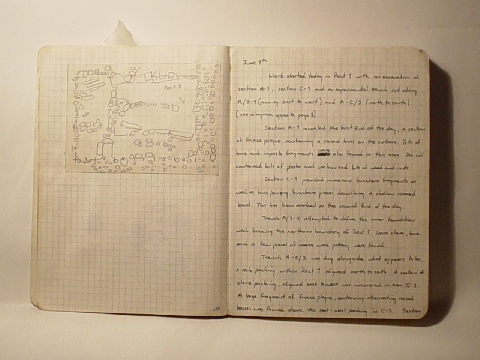 June 7th
Work started today in Rect I with an excavation of
section A-1, section C-3 and an experimental trench cut along
A/3-4 (running east to west) and A-C/3 (north to south)
(see diagram opposite page).
Section A-1 revealed the first find of the day, a section
of bronze plaque, containing a round boss on the surface. Bits of
bone and were also found in this area. The soil
contained bits of plaster and carbonized bits of wood and nuts.
Section C-3 provided numerous fragments as
well as two joining pieces describing a shallow rimmed
bowl. This has been marked as the second find of the day.
Trench A/3-4 attempted to define the inner foundation
wall forming the northern boundary of Rect I. Some stone, bone
and a few pieces of coarse ware pottery were found.
Trench A-C/3 was dug alongside what appears to be
a main packing within Rect I aligned north to south. A section of
stone packing, aligned east to west was uncovered in area
A large fragment of bronze plaque, containing alternating round
bosses was found above the east-west packing in C-3. Section